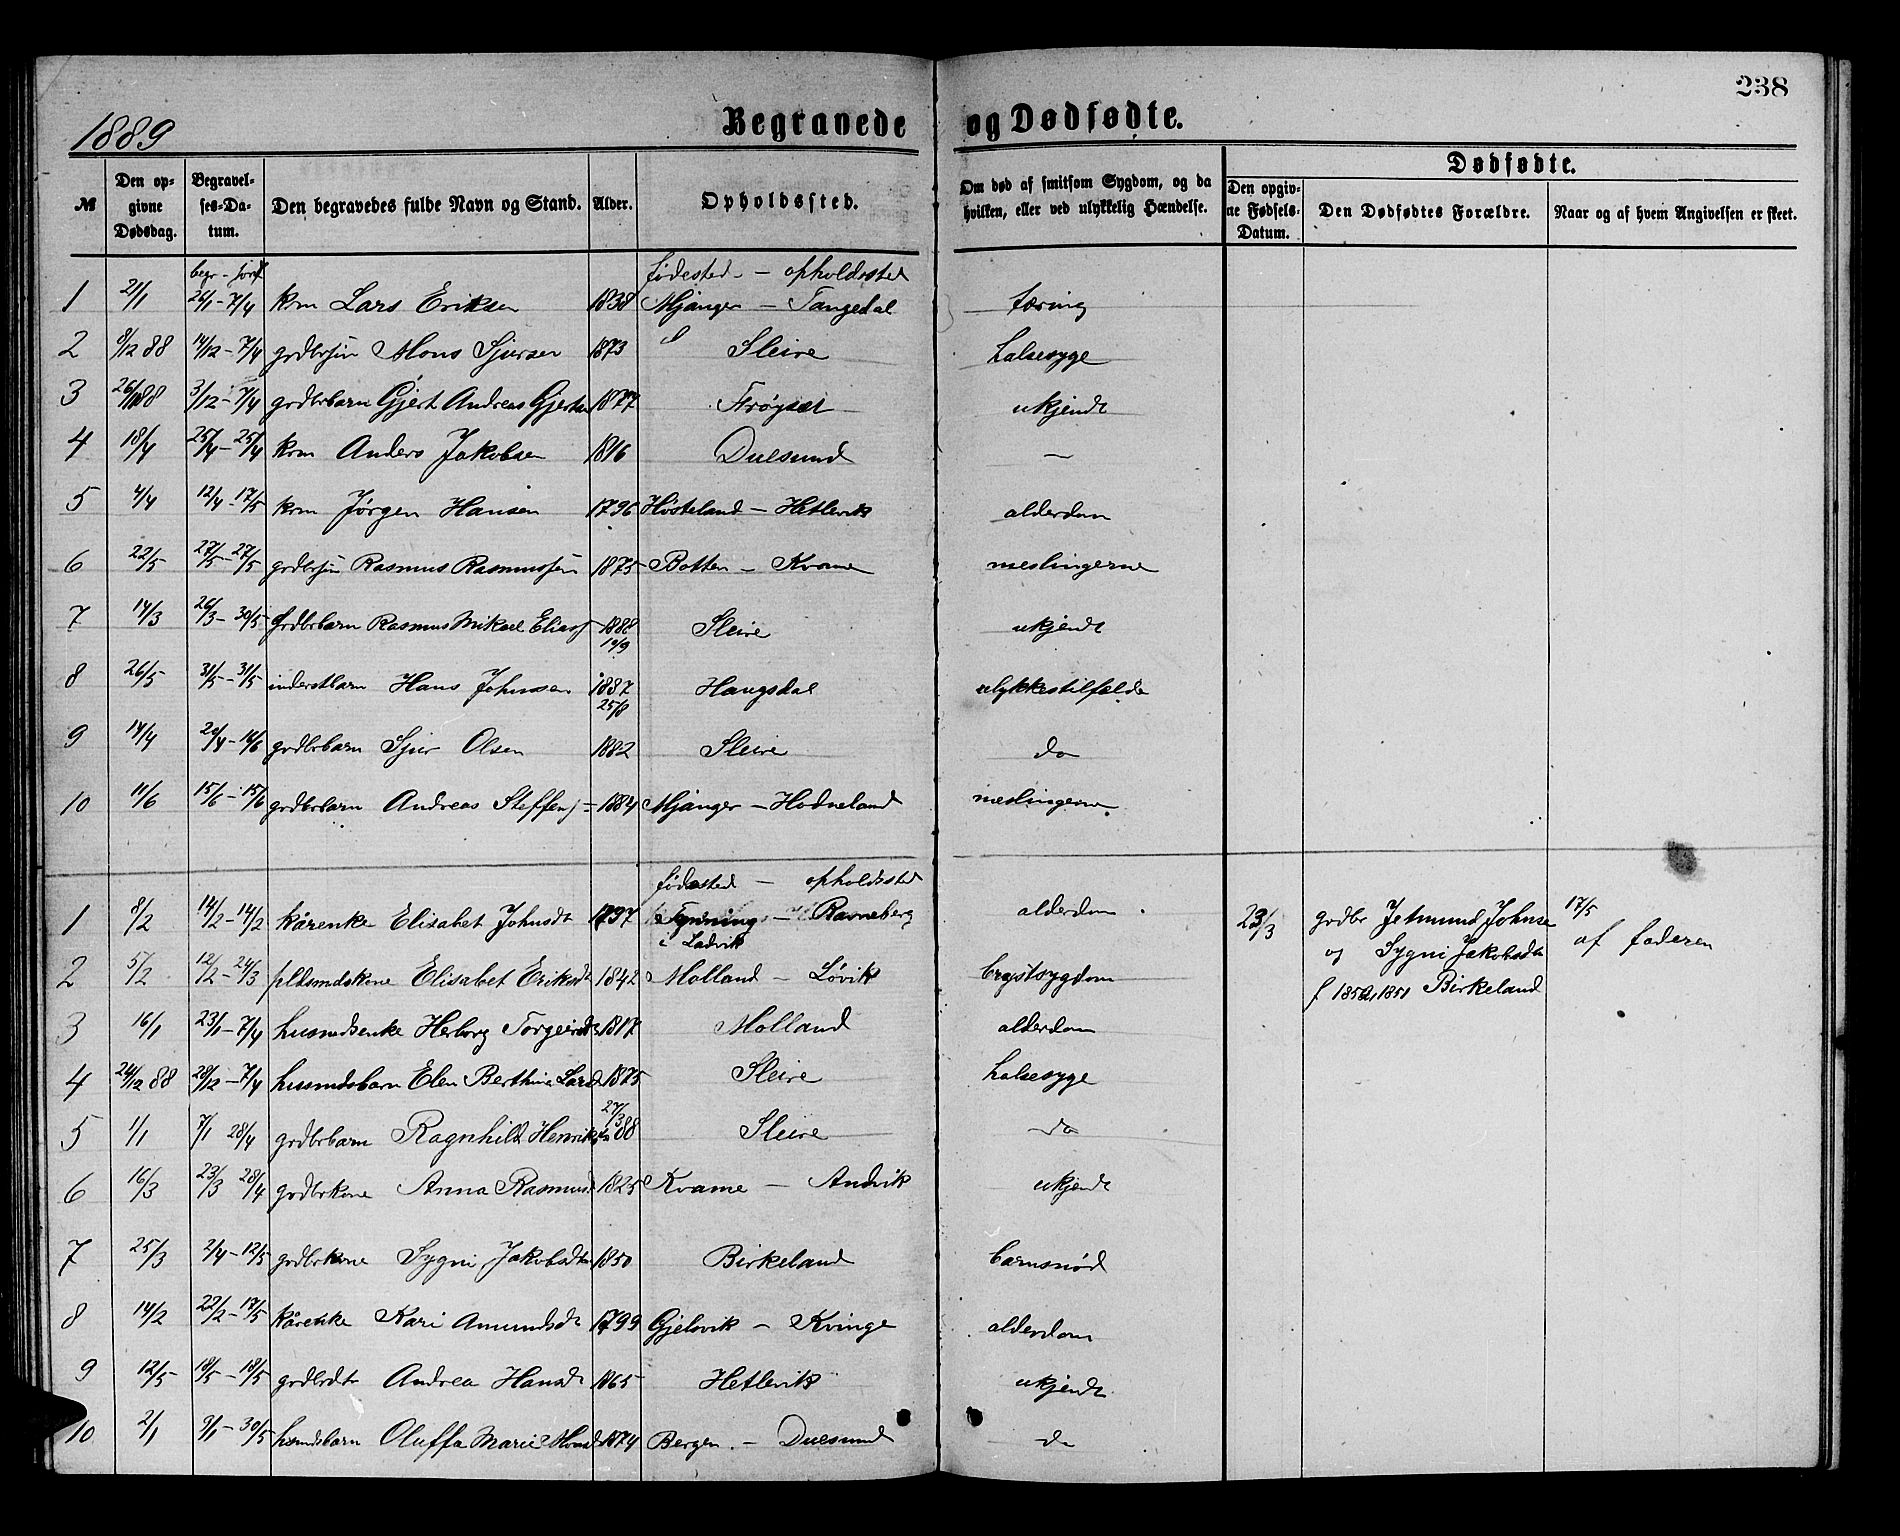 238
1889 Begravede og Dødfødte.
№ Den opgivne Dødsdag. Begravelses-Datum. Den begravedes fulde Navn og Stand. Alder. Opholdssted. Om død af smitsom Sygdom, og da hvilken, eller ved ulykkelig Hændelse. Dødfødte. Den opgivne Fødsels-Datum. Den Dødfødtes Forældre. Naar og af hvem Angivelsen er skeet.
begr - jordf fødested - opholdssted
1 21/1 26/1 - 7/4 krm Lars Eriksen 1838 Mjanger - Tangedal tæring
2 8/12 88 14/12 - 7/4 grdbrsøn Mons Sjursen 1873 Sleire halsesyge
3 26/11 88 3/12 - 7/4 grdbrbarn Gjert Andreas Gjertsen 1877 Frøyset ukjendt
4 18/4 25/4 - 25/4 krm Anders Jakobsen 1816 Duesund —
5 4/4 12/4 - 17/5 krm Jørgen Hansen 1796 Høsteland - Hetlevik alderdom
6 22/5 27/5 - 27/5 grdbrsøn Rasmus Rasmussen 1875 Botten - Kvame meslingerne
7 14/3 26/3 - 30/5 grdbrbarn Rasmus Mikael Eliass 1888 Sleire ukjendt
19/9
8 26/5 31/5 - 31/5 inderstbarn Hans Johnsen 1887 Haugsdal ulykkestilfelde
25/8
9 14/4 20/4 - 16/6 grdbrbarn Sjur Olsen 1882 Sleire do
10 11/6 15/6 - 15/6 grdbrbarn Andreas Steffens 1884 Mjanger - Hodneland meslingerne
fødested - opholdssted
1 8/2 14/2 - 14/2 kårenke Elisabet Johnsdt 1797 Tynning - Ravneberg alderdom 23/3 grdbr Jetmund Johnsen 17/5
i Ladvik og Sygni Jakobsdtr af faderen
2 5/2 12/2 - 24/3 pldsmdskone Elisabet Eriksdt 1842 Molland - Løvik brystsygdom f 1852, 1851 Birkeland
3 16/1 23/1 - 7/4 husmdsenke Herborg Torgeirsdt 1817 Molland alderdom
4 24/12 88 28/12 - 7/4 husmdsbarn Elen Berthina Larsd 1875 Sleire halsesyge
5 1/1 7/1 28/4 grdbrbarn Ragnhild Henriksdtr 27/3 88 Sleire do
6 16/3 23/3 28/4 grdbrkone Anna Rasmusd 1825 Kvame - Andvik ukjendt
7 25/3 2/4 - 12/5 grdbrkone Sygni Jakobsdtr 1850 Birkeland barnsnød
8 14/2 22/2 - 17/5 kårenke Kari Amundsdt 1799 Gjelsvik - Kvinge alderdom
9 12/5 18/5 - 18/5 grdbrdtr Andrea Hansdt 1865 Hetlevik ukjendt
10 2/1 9/1 - 30/5 husmdsbarn Oluffa Marie Monsd 1874 Bergen - Duesund do